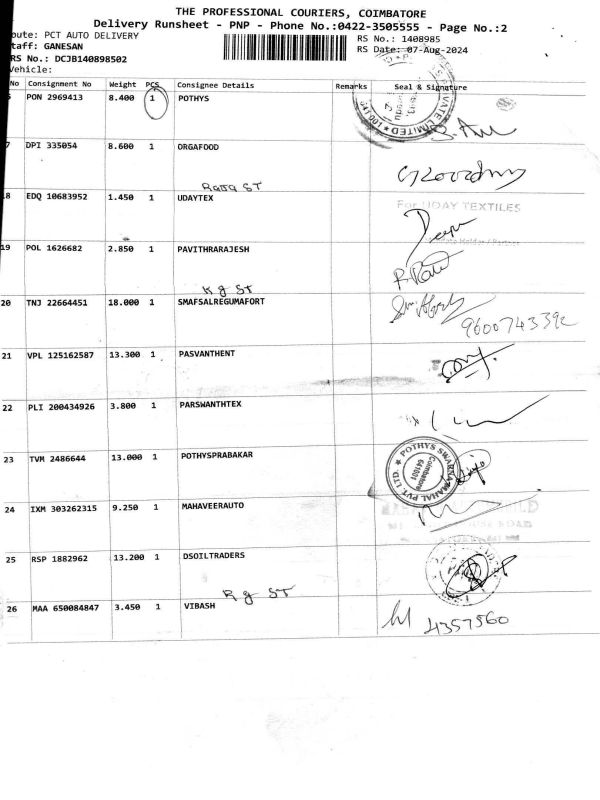 THE PROFESSIONAL COURIERS, COIMBATORE
Delivery Runsheet - PNP - Phone No.:0422-3505555 - Page No.:2
oute: PCT AUTO DELIVERY RS No.: 1408985
taff: GANESAN RS Date: 07-Aug-2024
RS No.: DCJB140898502
Vehicle:
No Consignment No Weight PCS Consignee Details Remarks Seal & Signature
PON 2969413 8.400 1 POTHYS
641001 PRIVATE LIMITED
7 DPI 335054 8.600 1 ORGAFOOD
Raja ST
18 EDQ 10683952 1.450 1 UDAYTEX For UDAY TEXTILES
19 POL 1626682 2.850 1 PAVITHRARAJESH
K g ST
20 TNJ 22664451 18.000 1 SMAFSALREGUMAFORT
9600743392
21 VPL 125162587 13.300 1 PASVANTHENT
22 PLI 200434926 3.800 1 PARSWANTHTEX
23 TVM 2486644 13.000 1 POTHYSPRABAKAR
POTHYS SWARNAMAHAL PVT. LTD. Coimbatore 641001
24 IXM 303262315 9.250 1 MAHAVEERAUTO
ROAD
25 RSP 1882962 13.200 1 DSOILTRADERS
R g ST
26 MAA 650084847 3.450 1 VIBASH
4357560